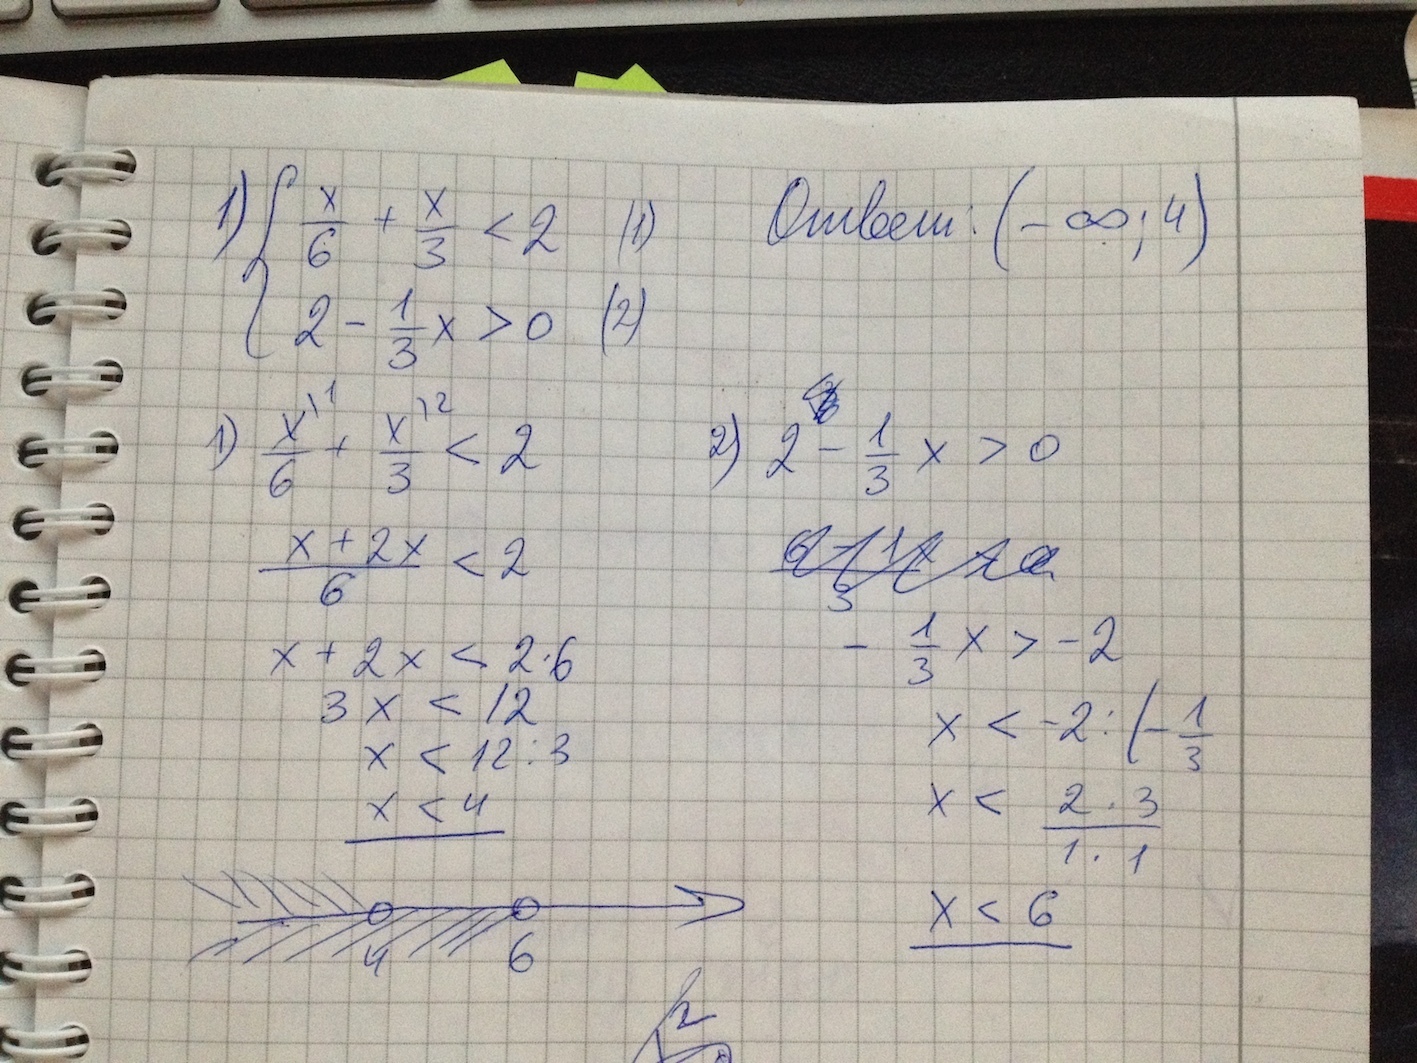 1) { x/6 + x/3 < 2 (1)
2 - 1/3 x > 0 (2)
Ответ: (-∞; 4)
1) x\1/6 + x\2/3 < 2
x + 2x/6 < 2
x + 2x < 2·6
3x < 12
x < 12:3
x < 4
2) 2 - 1/3 x > 0
- 1/3 x > -2
x < -2:(-1/3
x < 2·3/1·1
x < 6
4 6